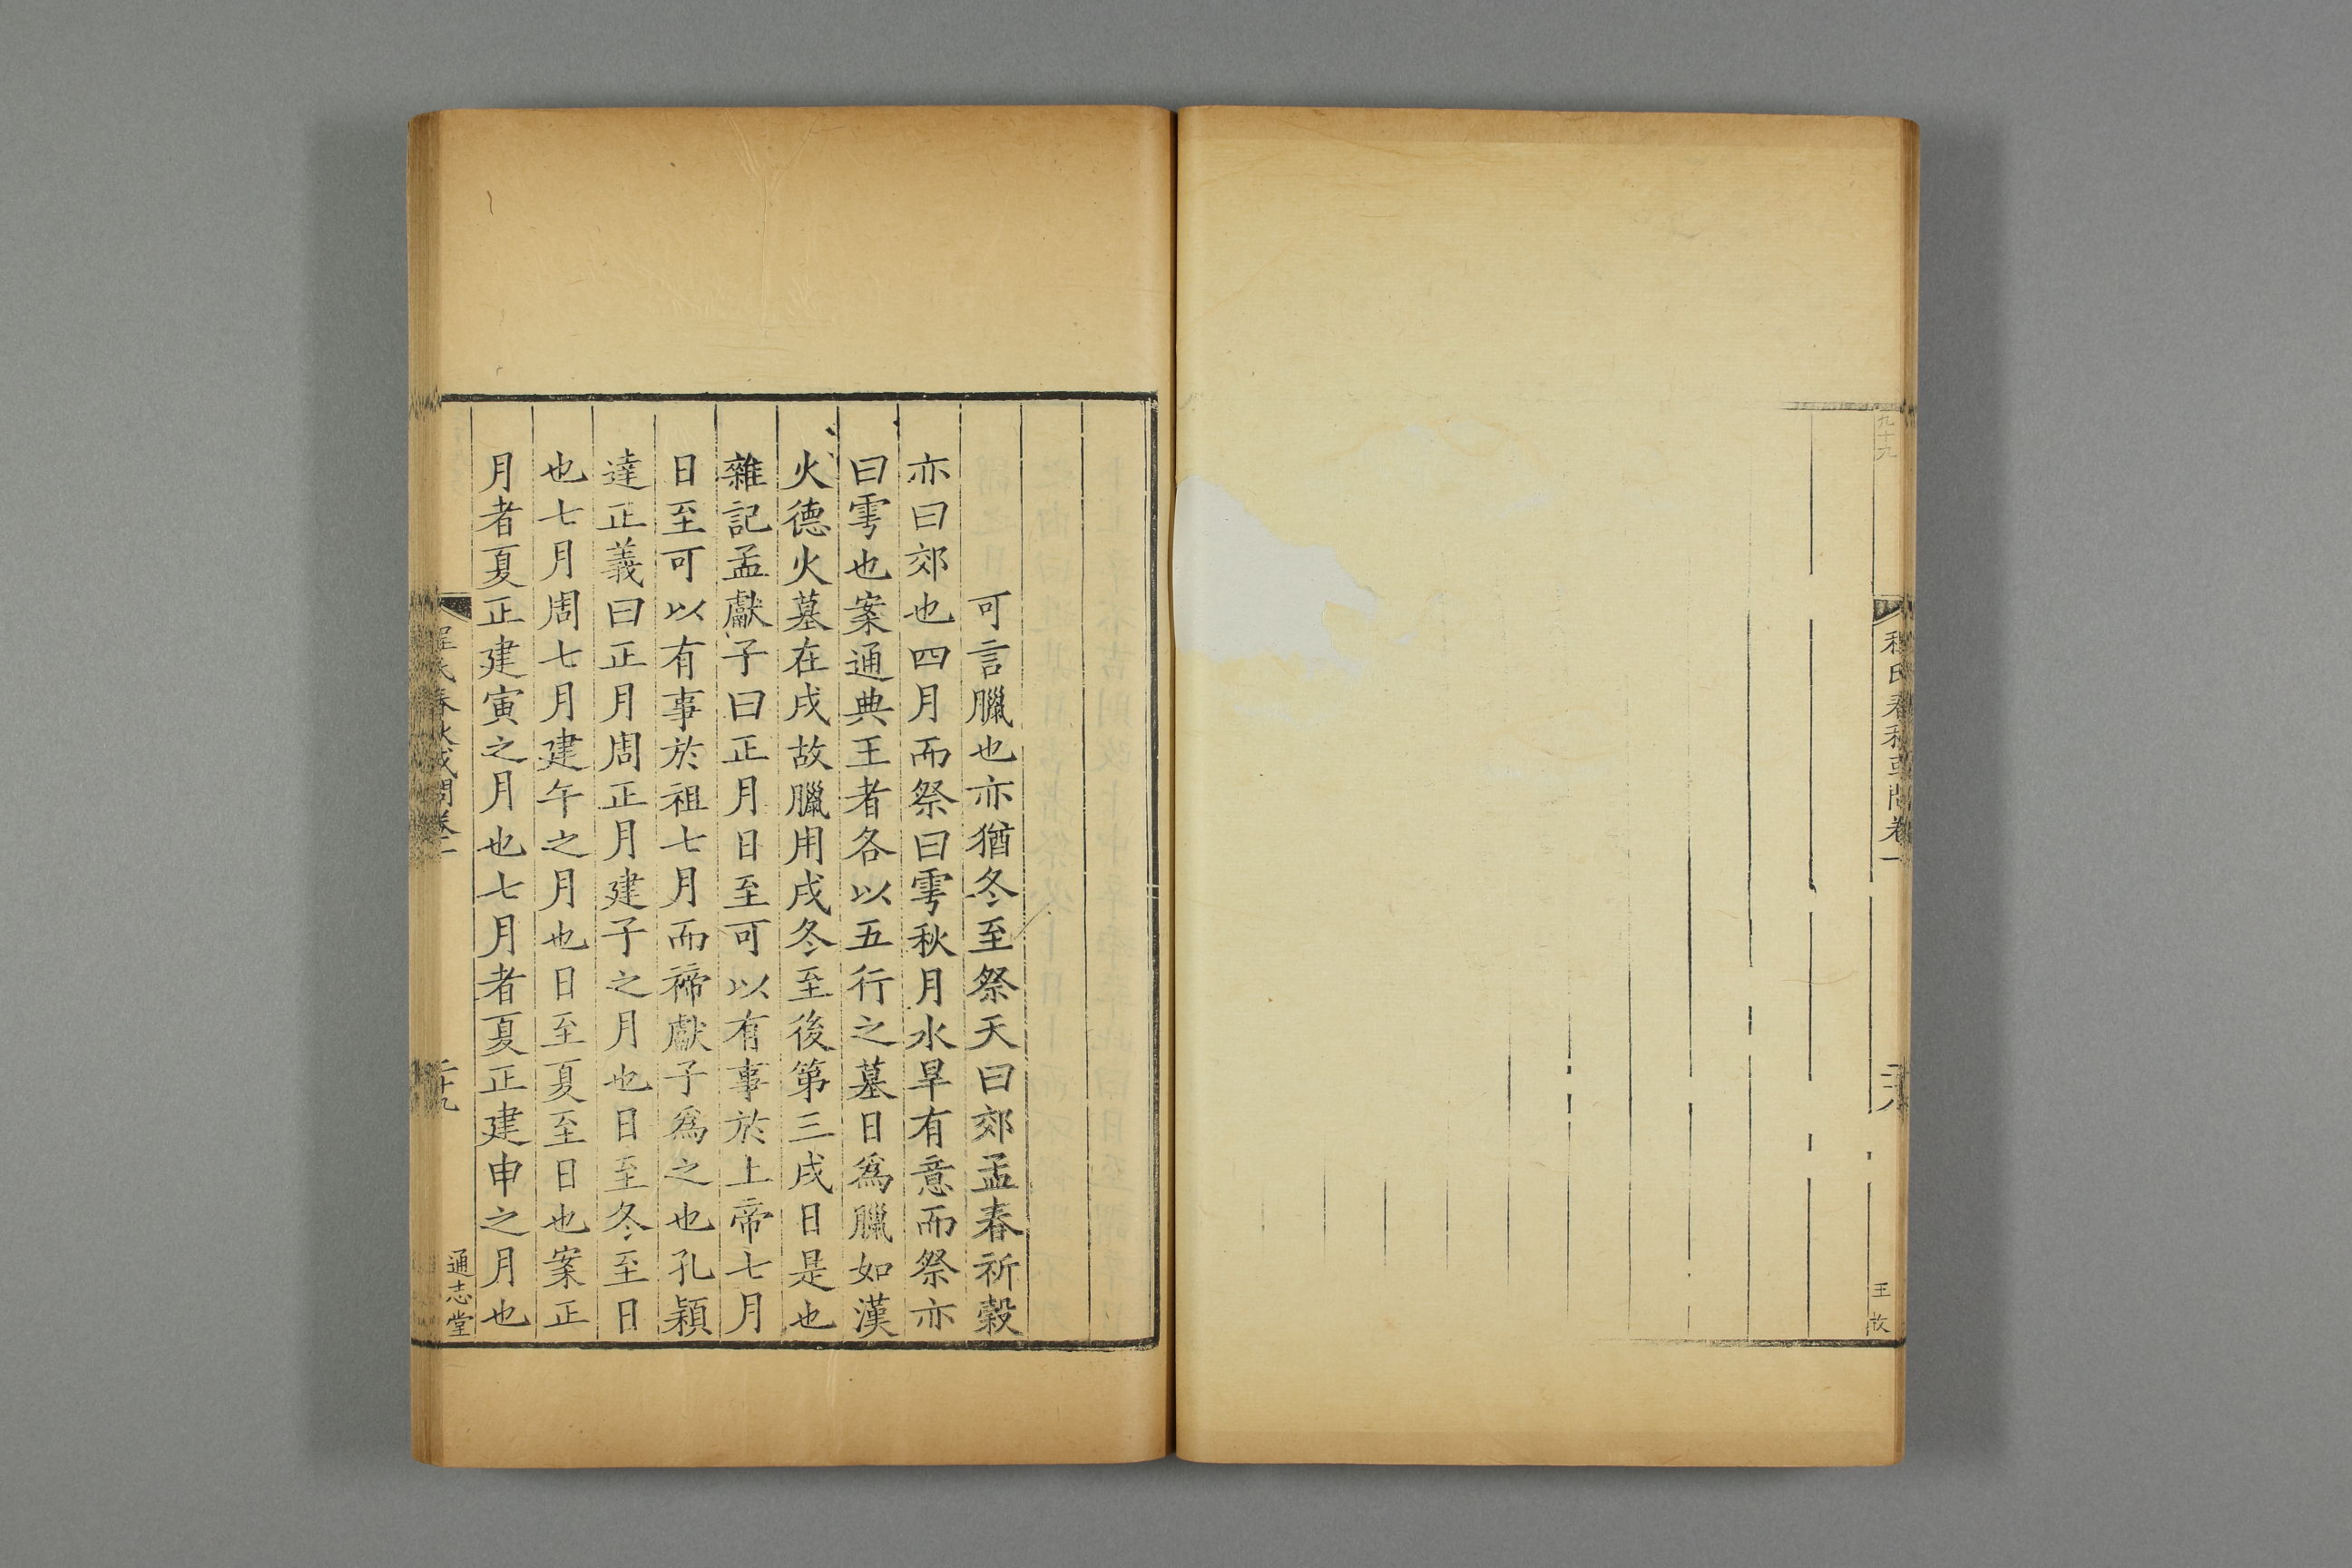 九十九
程氏春秋或問卷一
王
可言臘也亦猶冬至祭天曰郊孟春祈穀
亦曰郊也四月而祭曰雩秋月水旱有意而祭亦
曰雩也案通典王者各以五行之墓日爲臘如漢
火德火墓在戌故臘用戌冬至後第三戌日是也
雜記孟獻子曰正月日至可以有事於上帝七月
日至可以有事於祖七月而禘獻子爲之也孔穎
達正義曰正月周正月建子之月也日至冬至日
也七月周七月建午之月也日至夏至日也案正
月者夏正建寅之月也七月者夏正建申之月也
程氏春秋或問卷一
二十九
通志堂